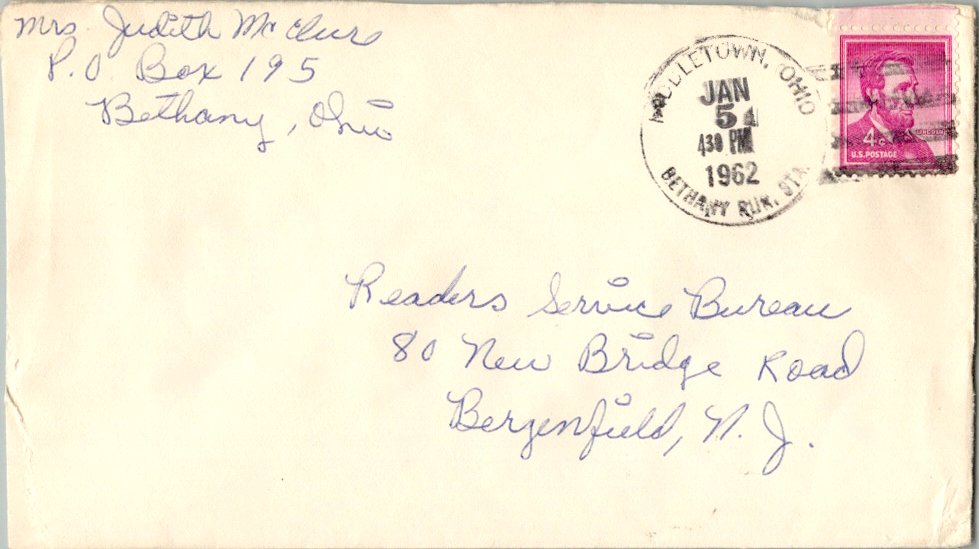 Mrs. Judith McClure
P.O. Box 195
Bethany, Ohio
MIDDLETOWN, OHIO
JAN
5
430 PM
1962
BETHANY RUR. STA.
LINCOLN
4c
U.S. POSTAGE
Readers Service Bureau
80 New Bridge Road
Bergenfield, N. J.